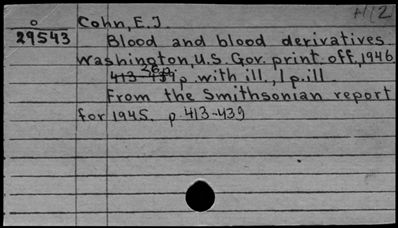 +112
o
29543
Cohn, E.J.
Blood and blood derivatives.
Washington, U.S. Gov. print. off., 1946
36 p.
413-439 p. with ill., 1 p. ill.
From the Smithsonian report
for 1945. p. 413-439